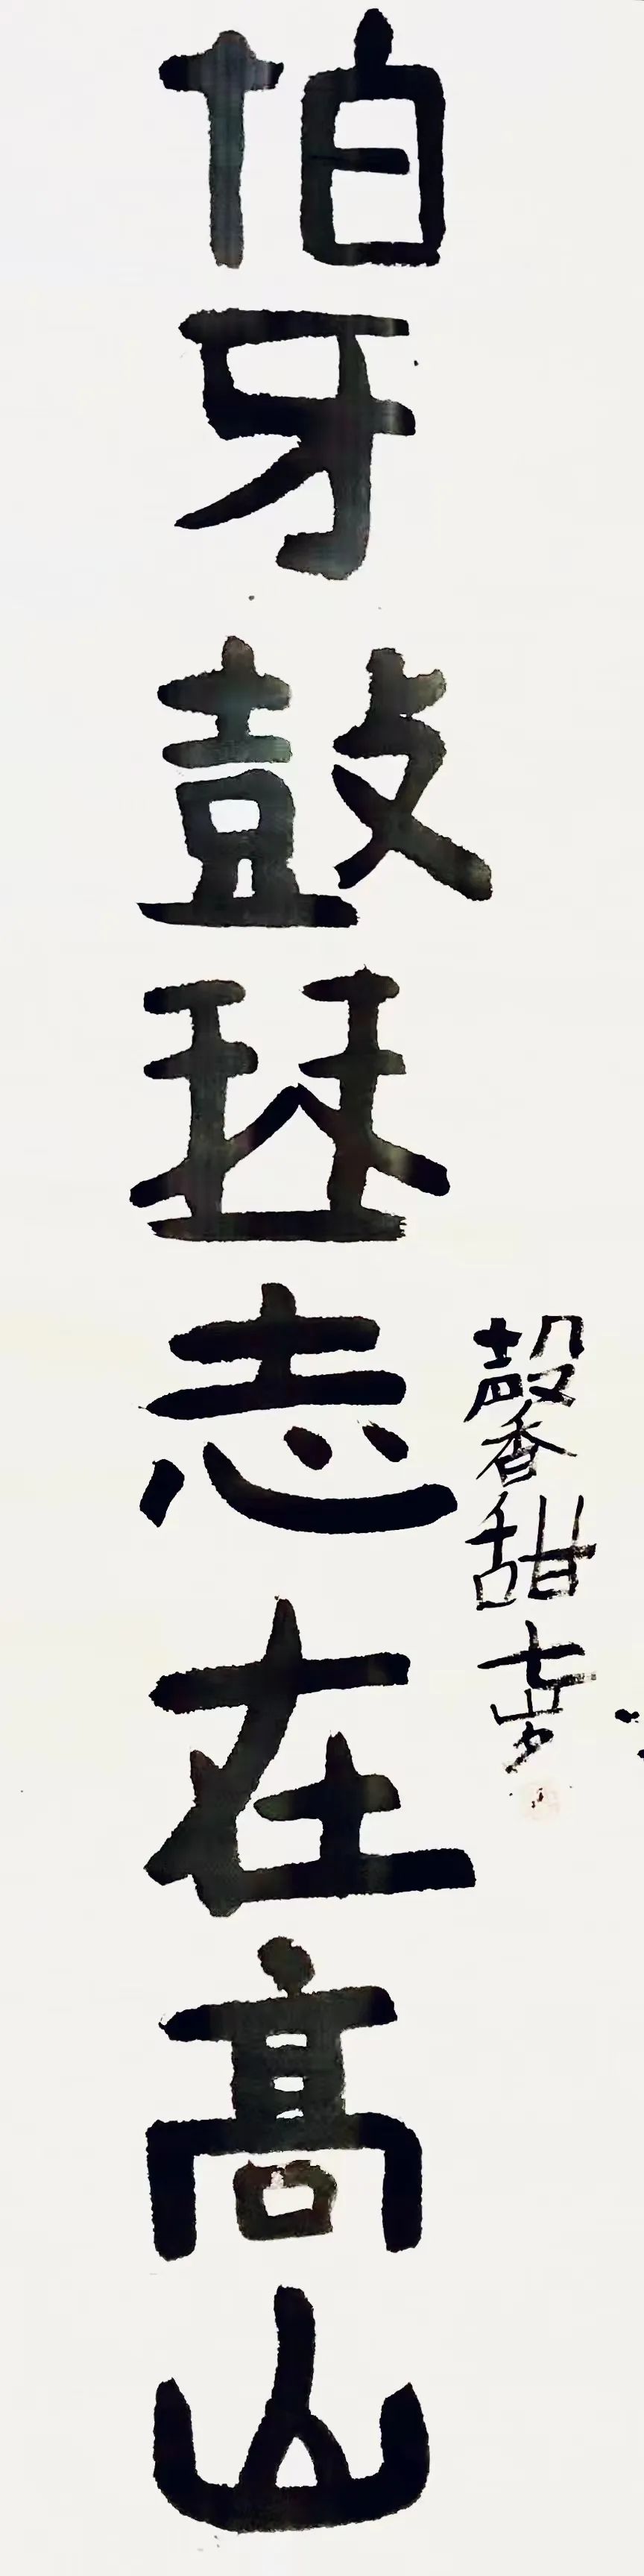 伯牙鼓琴志在高山
馨香甜七岁